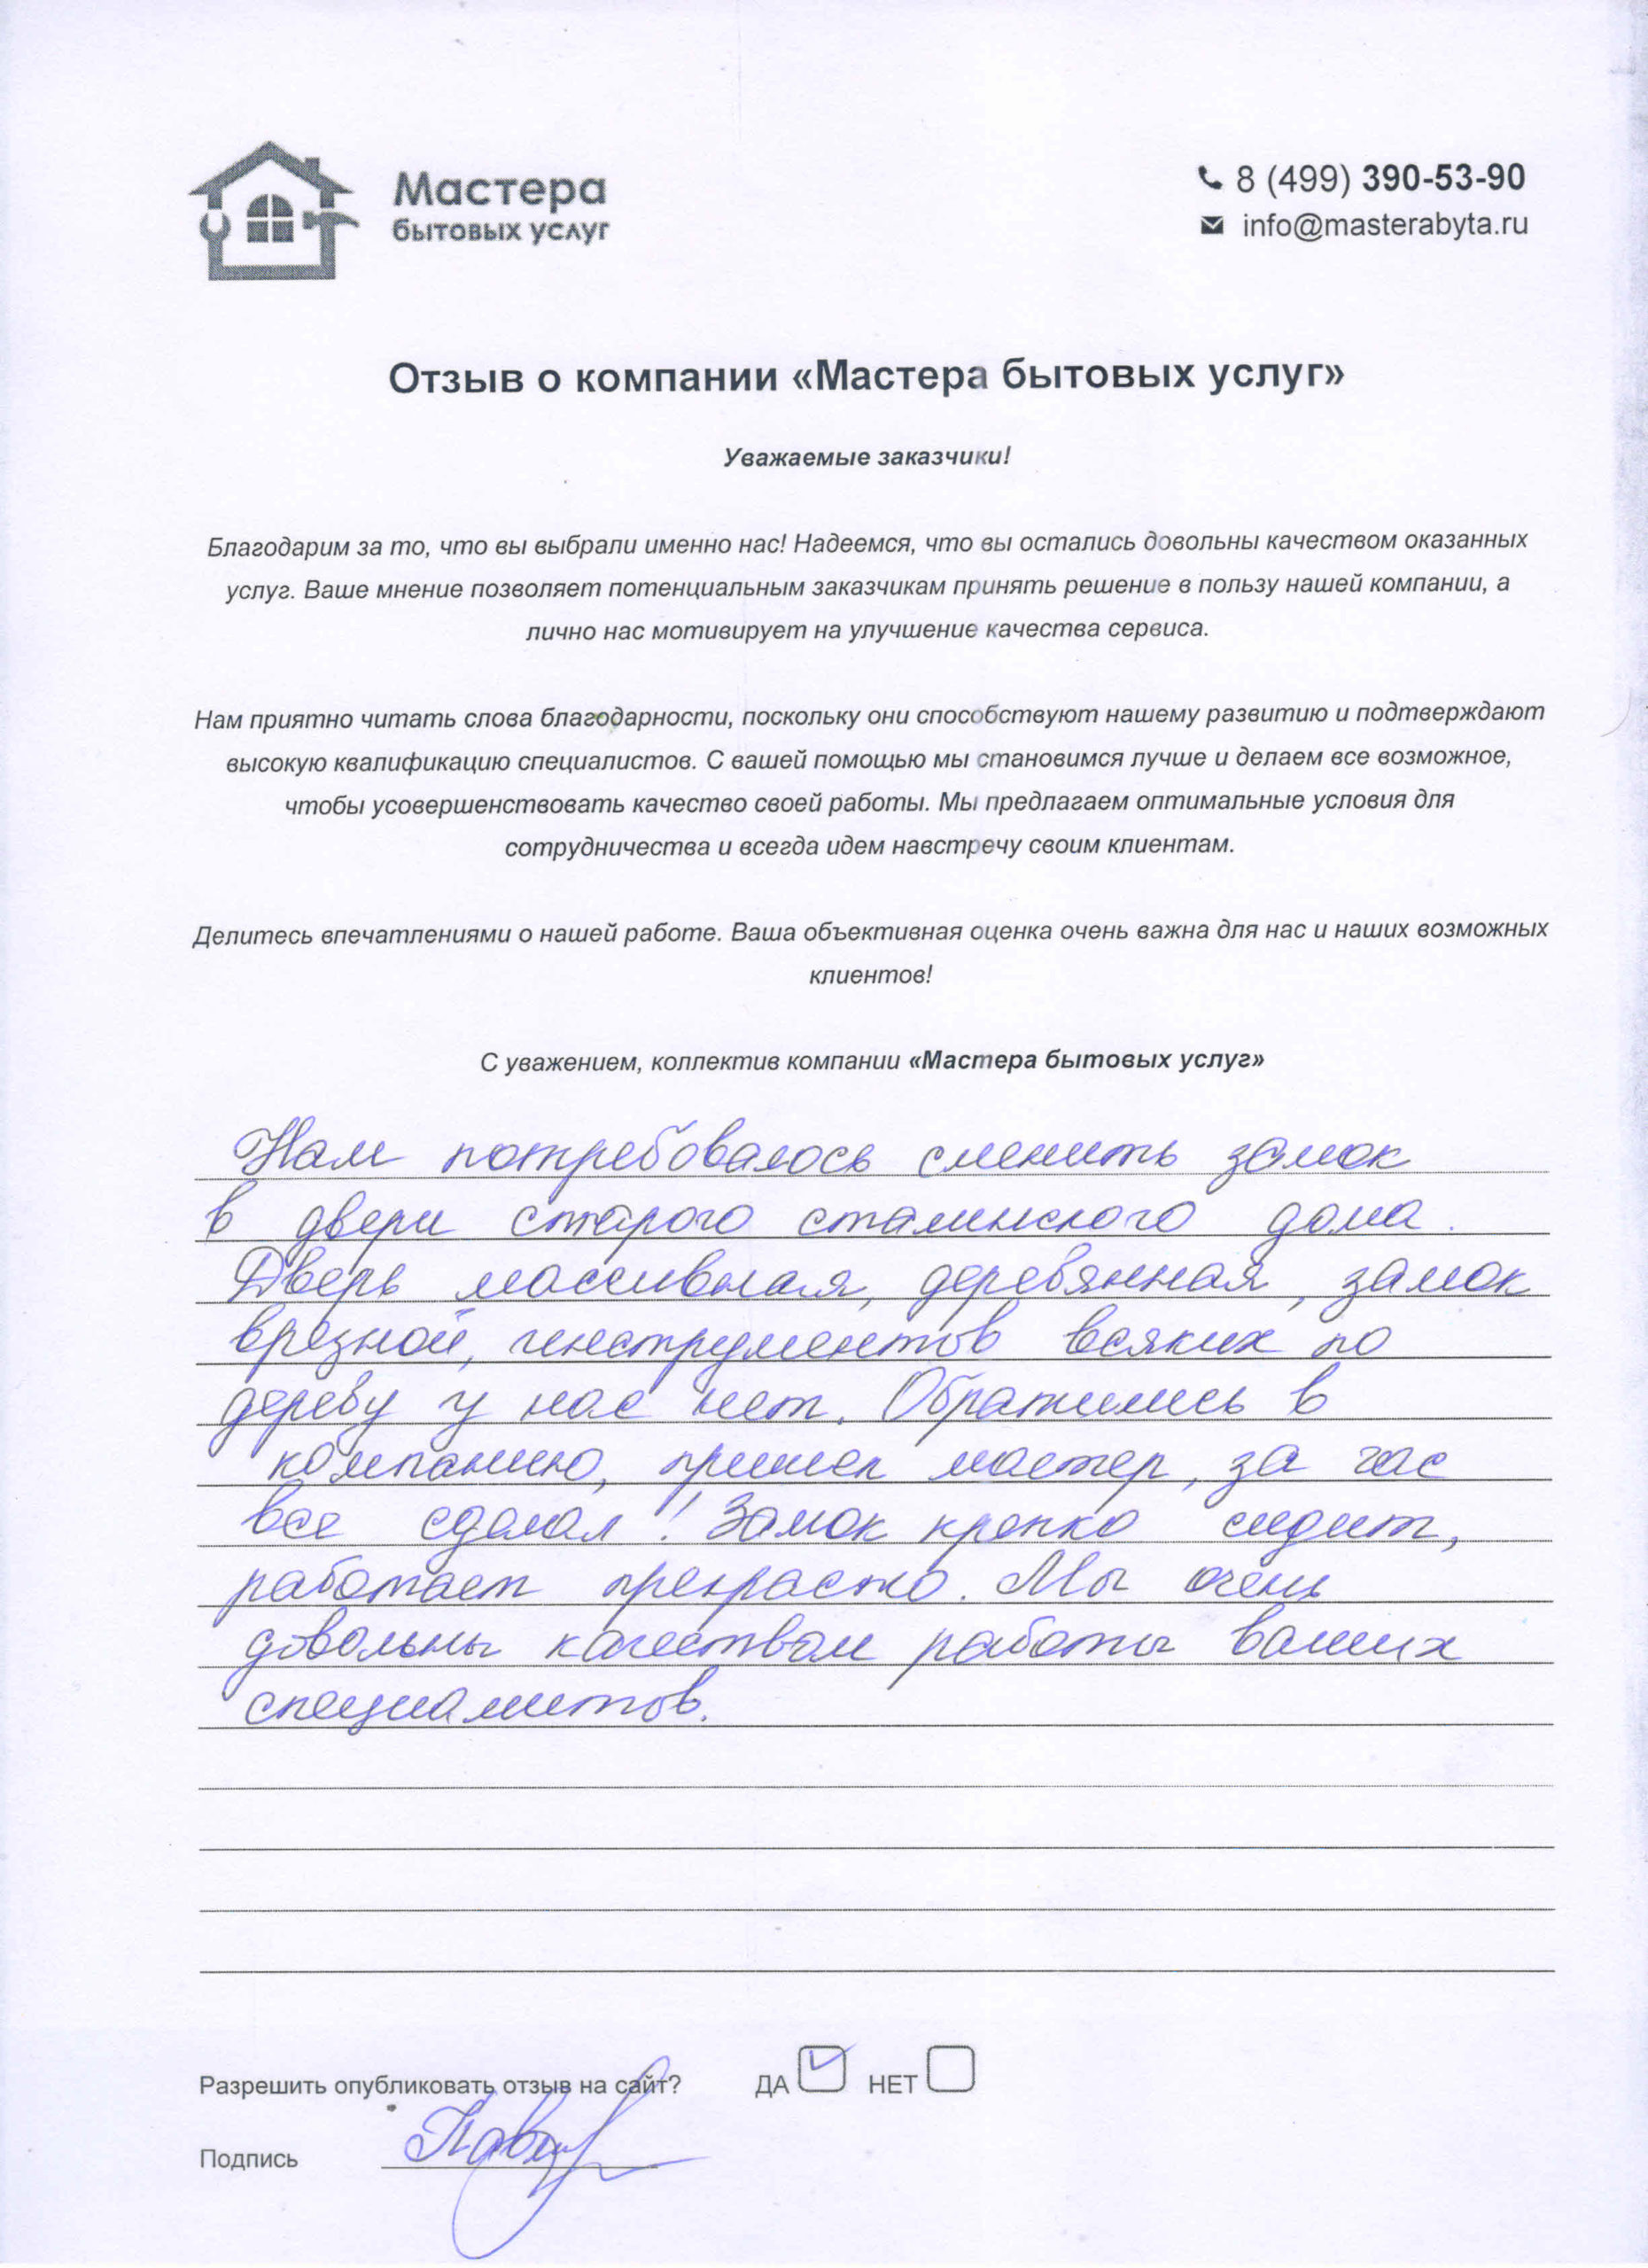 Мастера
бытовых услуг
8 (499) 390-53-90
info@masterabyta.ru
Отзыв о компании «Мастера бытовых услуг»
Уважаемые заказчики!
Благодарим за то, что вы выбрали именно нас! Надеемся, что вы остались довольны качеством оказанных
услуг. Ваше мнение позволяет потенциальным заказчикам принять решение в пользу нашей компании, а
лично нас мотивирует на улучшение качества сервиса.
Нам приятно читать слова благодарности, поскольку они способствуют нашему развитию и подтверждают
высокую квалификацию специалистов. С вашей помощью мы становимся лучше и делаем все возможное,
чтобы усовершенствовать качество своей работы. Мы предлагаем оптимальные условия для
сотрудничества и всегда идем навстречу своим клиентам.
Делитесь впечатлениями о нашей работе. Ваша объективная оценка очень важна для нас и наших возможных
клиентов!
С уважением, коллектив компании «Мастера бытовых услуг»
Нам потребовалось сменить замок
в двери старого сталинского дома.
Дверь массивная, деревянная, замок
врезной, инструментов всяких по
дереву у нас нет. Обратились в
компанию, пришел мастер, за час
все сделал! Замок крепко сидит,
работает прекрасно. Мы очень
довольны качеством работы ваших
специалистов.
Разрешить опубликовать отзыв на сайт? ДА НЕТ
Подпись